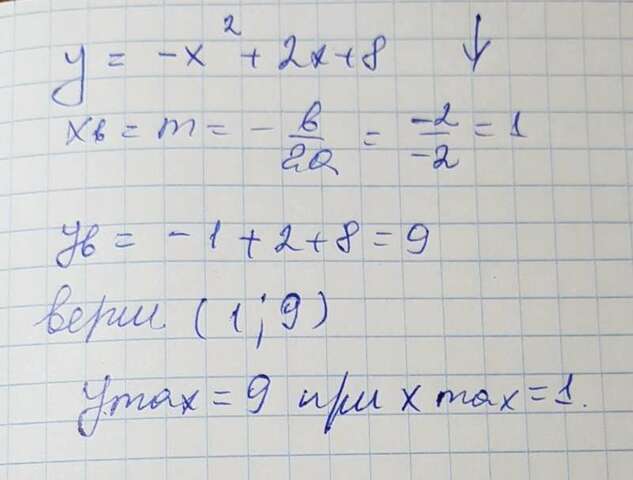 y = -x² + 2x + 8 ↓
xв = m = - в/2a = -2/-2 = 1
yв = -1 + 2 + 8 = 9
верш. (1; 9)
ymax = 9 при x max = 1.